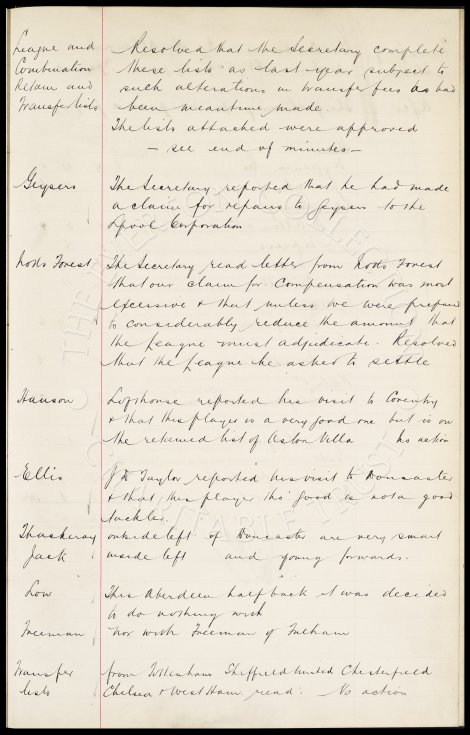 League and Resolved that the Secretary complete
Combination these lists as last year subject to
Retain and such alterations in transfer fees as had
Transfer lists been meantime made
The lists attached were approved
— see end of minutes —
Geysers The Secretary reported that he had made
a claim for repairs to Geysers to the
Lpool Corporation
Notts Forest The Secretary read letter from Notts Forest
that our claim for Compensation was most
excessive & that unless we were prepared
to considerably reduce the amount that
the League must adjudicate. Resolved
that the League be asked to settle
Hanson Lofthouse reported his visit to Coventry
& that this player is a very good one but is on
the retained list of Aston Villa No action
Ellis Taylor reported his visit to Doncaster
& that this player tho' good is not a good
tackler.
Thackeray outside left of Doncaster are very smart
Jack inside left and young forwards.
Low This Aberdeen half back it was decided
to do nothing with
Freeman Nor with Freeman of Fulham
Transfer from Tottenham Sheffield United Chesterfield
lists Chelsea & West Ham read. No action